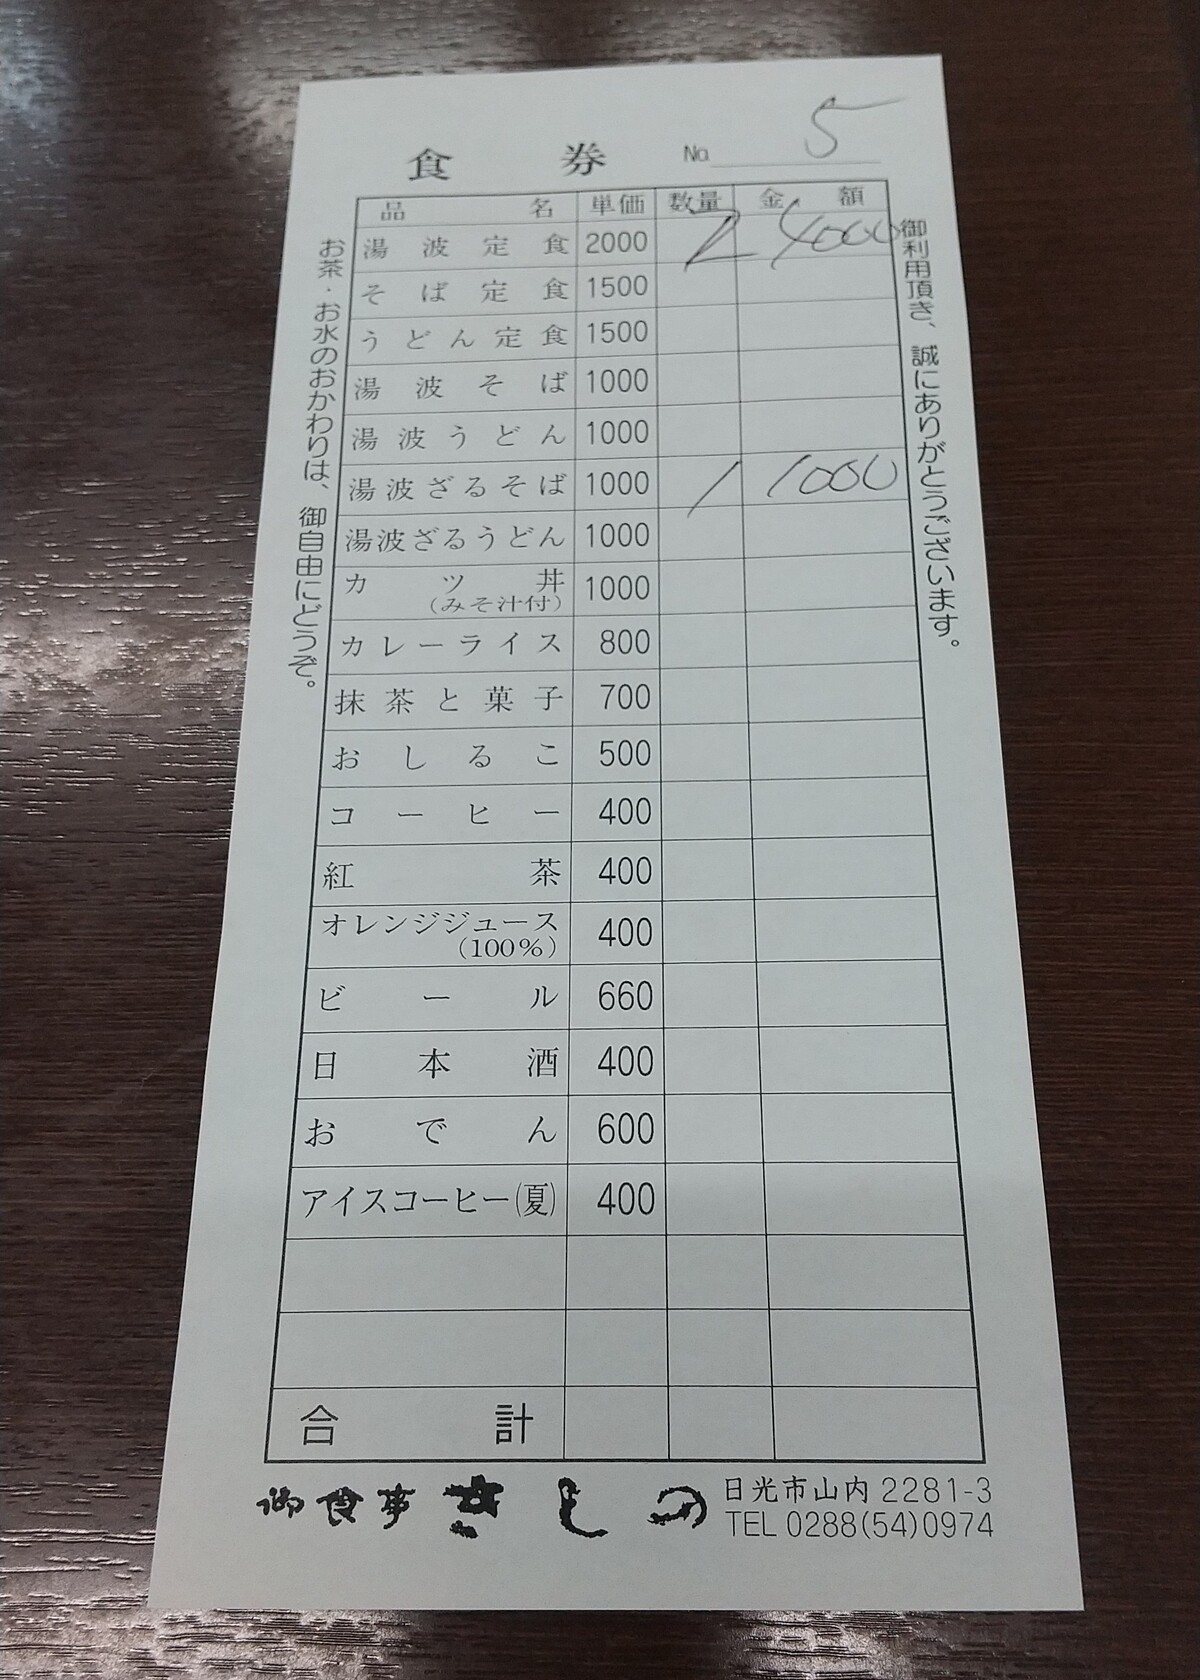 食券 No 5
品名 単価 数量 金額
湯波定食 2000 2 4000
そば定食 1500
うどん定食 1500
湯波そば 1000
湯波うどん 1000
湯波ざるそば 1000 1 1000
湯波ざるうどん 1000
カツ丼 1000
(みそ汁付)
カレーライス 800
抹茶と菓子 700
おしるこ 500
コーヒー 400
紅茶 400
オレンジジュース 400
(100%)
ビール 660
日本酒 400
おでん 600
アイスコーヒー(夏) 400
合計
御利用頂き、誠にありがとうございます。
お茶・お水のおかわりは、御自由にどうぞ。
御食事 きしの
日光市山内2281-3
TEL 0288(54)0974